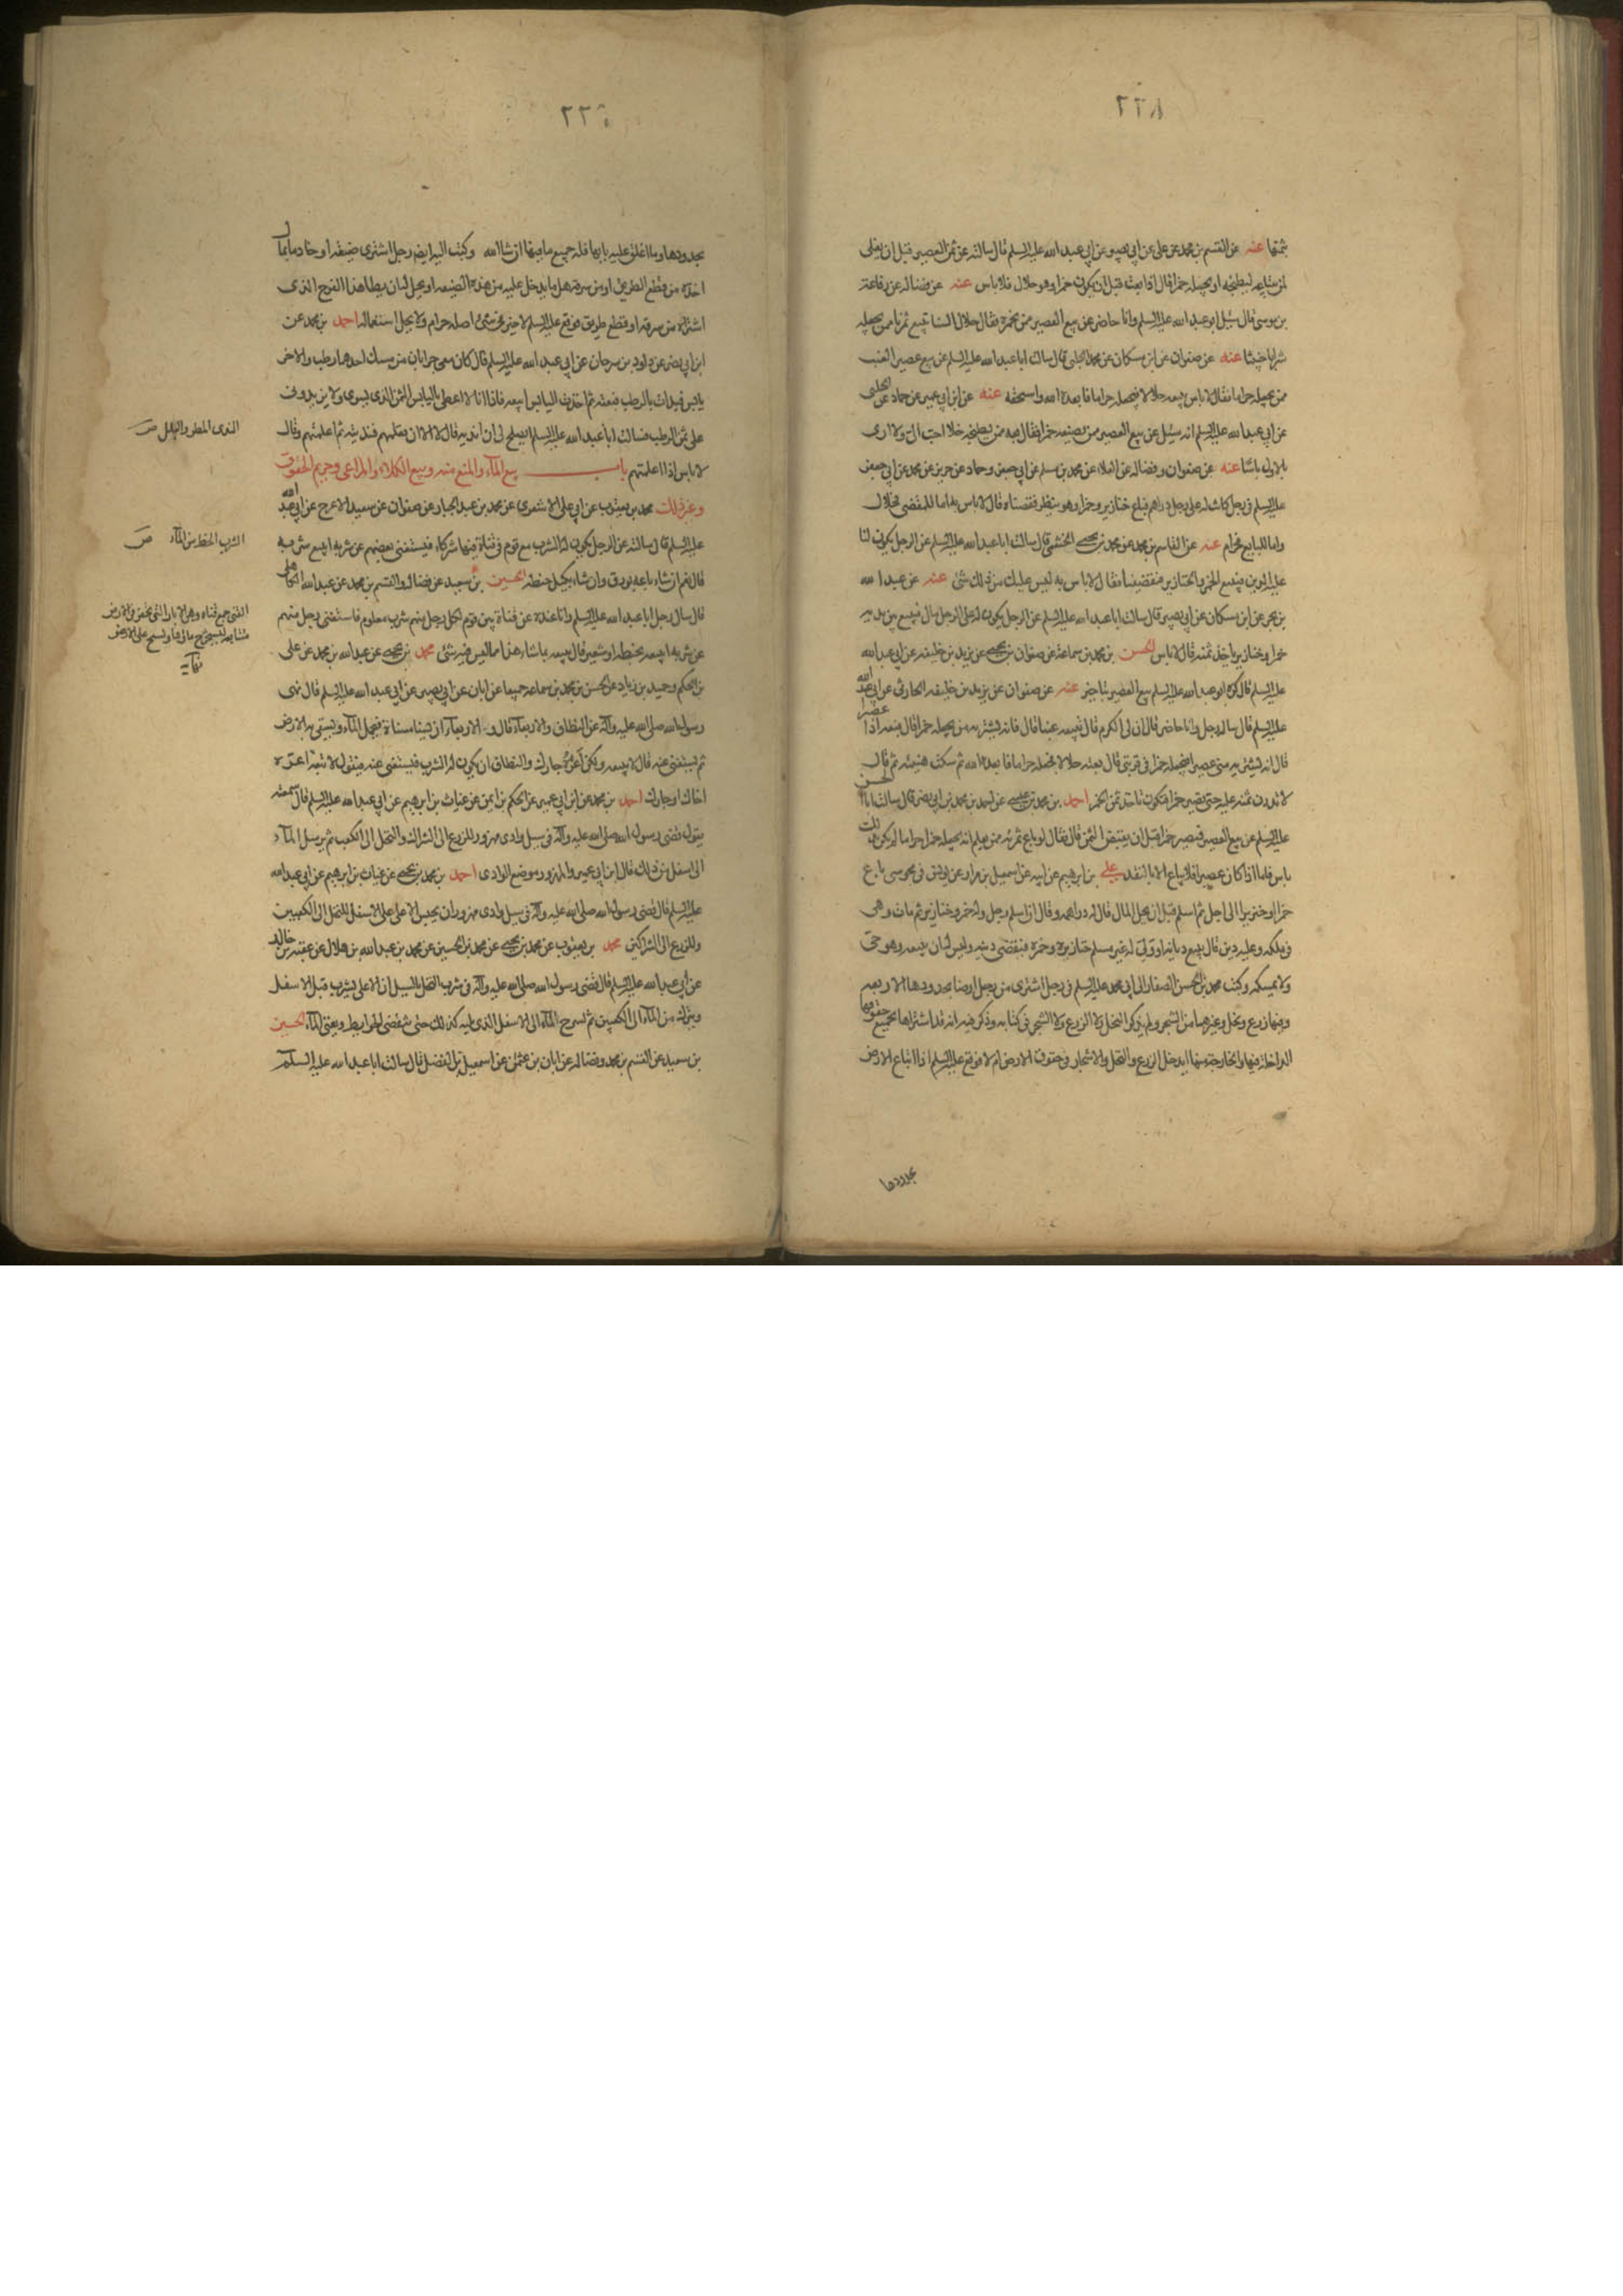 ثمنها عنه عن القسم بن محمد عن علي عن ابي بصير عن ابي عبد الله عليه السلم قال سالته عن ثمن العصير قبل ان يغلى
لمن يبتاعه ليطبخه او يجعله خمرا قال اذا بعته قبل ان يكون خمرا وهو حلال فلا باس عنه عن فضاله عن رفاعة
بن موسى قال سئل ابو عبد الله عليه السلم وانا حاضر عن بيع العصير ممن يخمره فقال حلال السنا نبيع تمرنا ممن يجعله
شرابا خبيثا عنه عن صفوان عن ابن مسكان عن محمد الحلبى قال سالت ابا عبد الله عليه السلم عن بيع عصير العنب
ممن يجعله حراما فقال لا باس ببيعه حلالا فيجعله حراما فابعده الله واسحقه عنه عن ابن ابي عمير عن حماد عن الحلبى
عن ابي عبد الله عليه السلم انه سئل عن بيع العصير ممن يصنعه خمرا فقال بعه ممن يطبخه خلا احب الى ولا ارى
بالاول باسا عنه عن صفوان وفضاله عن العلاء عن محمد بن مسلم عن ابي جعفر وحماد عن حريز عن محمد عن ابي جعفر
عليه السلم في رجل كانت له على رجل دراهم فباع خنازير وخمرا وهو ينظر فقضاه قال لا باس به اما للمقضى فحلال
واما للبايع فحرام عنه عن القاسم بن محمد عن محمد بن يحيى الخثعمى قال سالت ابا عبد الله عليه السلم عن الرجل يكون لنا
عليه الدين فيبيع الخمر والخنازير فيقضينا فقال لا باس به ليس عليك من ذلك شئ عنه عن عبد الله
بن بحر عن ابن مسكان عن ابي بصير قال سالت ابا عبد الله عليه السلم عن الرجل يكون له على الرجل مال فيبيع بين يديه
خمرا وخنازير ياخذ ثمنه قال لا باس الحسن بن محمد بن سماعة عن صفوان بن يحيى عن يزيد بن خليفه عن ابي عبد الله
عليه السلم قال كره ابو عبد الله عليه السلم بيع العصير بتاخير عنه عن صفوان عن يزيد بن خليفه الحارثى عن ابي عبد الله
عليه السلم قال ساله رجل وانا حاضر قال ان لى الكرم قال تبيعه عنبا قال فانه يشتريه من يجعله خمرا قال فبعه اذا عصيرا
قال انه يشتريه منى عصيرا فيجعله خمرا في قربتى قال بعته حلالا فجعله حراما فابعده الله ثم سكت هنيئه ثم قال
لا تذرن ثمنه عليه حتى يصير خمرا فتكون تاخذ ثمن الخمر احمد بن محمد بن عيسى عن احمد بن محمد بن ابي نصر قال سالت ابا الحسن
عليه السلم عن بيع العصير فيصير خمرا قبل ان يقبض الثمن قال فقال لو باع ثمرته ممن يعلم انه يجعله خمرا حراما لم يكن بذلك
باس فاما اذا كان عصيرا فلا يباع الا بالنقد على بن ابرهيم عن ابيه عن اسمعيل بن مرار عن يونس في مجوسى باع
خمرا او خنزيرا الى اجل ثم اسلم قبل ان يحل المال قال له دراهمه وقال ان اسلم رجل وله خمر وخنازير ثم مات وهى
في ملكه وعليه دين قال يبيع ديانه او ولى له غير مسلم خنازيره وخمره فيقضى دينه وليس له ان يبيعه وهو حى
ولا يمسكه وكتب محمد بن الحسن الصفار الى ابي محمد عليه السلم في رجل اشترى من رجل ارضا بحدودها الاربعه
وفيها زرع ونخل وغيرهما من الشجر ولم يذكر النخل ولا الزرع ولا الشجر في كتابه وذكر فيه انه قد اشتراها بجميع حقوقها
الداخلة فيها والخارجة منها ايدخل الزرع والنخل والاشجار في حقوق الارض ام لا فوقع عليه السلم اذا ابتاع الارض
بحدودها
بحدودها وما اغلق عليه بابها فله جميع ما فيها ان شاء الله وكتب اليه ايضا رجل اشترى ضيعة او خادما بمال
اخذه من قطع الطريق او من سرقة هل ما يدخل عليه من هذه الضيعه او يحل له ان يطا هذا الفرج الذى
اشتراه من سرقه او قطع طريق فوقع عليه السلم لا خير في شئ اصله حرام ولا يحل استعماله احمد بن محمد عن
ابن ابي نصر عن داود بن سرحان عن ابي عبد الله عليه السلم قال كان معى جرابان من مسك احدهما رطب والاخر
يابس فبدات بالرطب فبعته ثم اخذت اليابس ابيعه فاذا انا لا اعطى باليابس الثمن الذى يسوى ولا يزيدونى
على ثمن الرطب فسالت ابا عبد الله عليه السلم ايصلح لى ان انديه قال لا الا ان تعلمهم فنديته ثم اعلمتهم وقال
لا باس اذا اعلمتهم باب بيع الماء والمنع منه وبيع الكلاء والمراعى وحريم الحقوق
وغير ذلك محمد بن يعقوب عن ابي على الاشعرى عن محمد بن عبد الجبار عن صفوان عن سعيد الاعرج عن ابي عبد الله
عليه السلم قال سالته عن الرجل يكون له الشرب مع قوم في قناة فيها شركاء فيستغنى بعضهم عن شربه ايبيع شربه
قال نعم ان شاء باعه بورق وان شاء بكيل حنطه الحسين بن سعيد عن فضاله والقسم بن محمد عن عبد الله الكاهلى
قال سال رجل ابا عبد الله عليه السلم وانا عنده عن قناة بين قوم لكل رجل منهم شرب معلوم فاستغنى رجل منهم
عن شربه ايبيعه بحنطه او شعير قال يبيعه بما شاء هذا مما ليس فيه شئ محمد بن يحيى عن عبد الله بن محمد عن على
بن الحكم وحميد بن زياد عن الحسن بن محمد بن سماعه جميعا عن ابان عن ابي بصير عن ابي عبد الله عليه السلم قال نهى
رسول الله صلى الله عليه وآله عن النطاف والاربعاء قال والاربعاء ان يسنا مسناة فيحمل الماء ويسقى به الارض
ثم يستغنى عنه قال لا تبعه ولكن اعره جارك والنطاف ان يكون له الشرب فيستغنى عنه فيقول لا تبعه اعره
اخاك او جارك احمد بن محمد عن ابن ابي عمير عن الحكم بن ايمن عن غياث بن ابرهيم عن ابي عبد الله عليه السلم قال سمعته
يقول قضى رسول الله صلى الله عليه وآله في سيل وادى مهزور للزرع الى الشراك والنخل الى الكعب ثم يرسل الماء
الى اسفل من ذلك قال ابن ابي عمير والمهزور موضع الوادى احمد بن محمد بن يحيى عن غياث بن ابرهيم عن ابي عبد الله
عليه السلم قال قضى رسول الله صلى الله عليه وآله في سيل وادى مهزور ان يحبس الاعلى على الاسفل للنخل الى الكعبين
وللزرع الى الشراكين محمد بن يعقوب عن محمد بن يحيى عن محمد بن الحسين عن محمد بن عبد الله بن هلال عن عقبه بن خالد
عن ابي عبد الله عليه السلم قال قضى رسول الله صلى الله عليه وآله في شرب النخل بالسيل ان الاعلى يشرب قبل الاسفل
ويترك من الماء الى الكعبين ثم يسرح الماء الى الاسفل الذى يليه كذلك حتى تنقضى الحوايط ويفنى الماء الحسين
بن سعيد عن القسم بن محمد وفضاله عن ابان بن عثمن عن اسمعيل بن الفضل قال سالت ابا عبد الله عليه السلم
الندى المطر والبلل ص
الشرب الحظ من الماء ص
القنى جمع قناه وهى الابار التى تحفر في الارض
متتابعه ليستخرج ماؤها ويسيح على الارض
نهايه